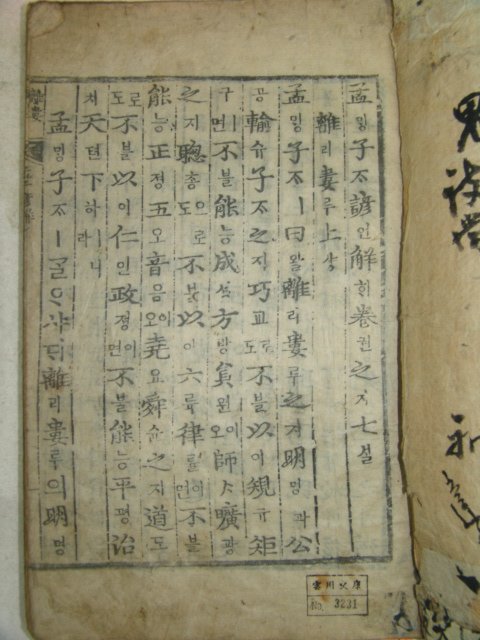 孟ᄆᆡᆼ子ᄌᆞ諺언解ᄒᆡ卷권之지七칠
離리婁루上샹
孟ᄆᆡᆼ子ᄌᆞㅣ曰왈離리婁루之지明명과公
공輸슈子ᄌᆞ之지巧교로도不블以이規규矩
구ㅣ면不블能능成셩方방員원이오師ᄉᆞ曠광
之지聰총으로도不블以이六륙律률이면不블
能능正졍五오音음이오堯요舜슌之지道도
로도不블以이仁인政졍이면不블能능平평治
치天텬下하ㅣ니라
孟ᄆᆡᆼ子ᄌᆞㅣᄀᆞᆯᄋᆞ샤ᄃᆡ離리婁루의明명
No. 3231